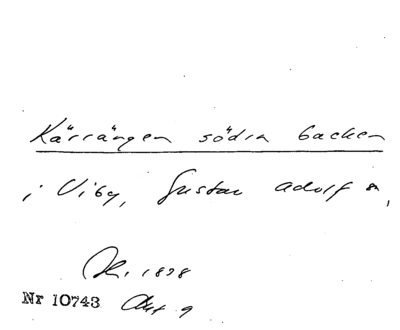 Kärrängen södra backen
i Viby, Gustav Adolf sn,
R. 1898
Nr 10743 Akt 9